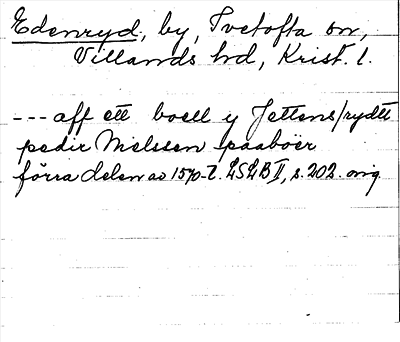 Edenryd, by, Ivetofta sn,
Villands hd, Krist. l.
--- aff ett boell y Jettens/rydtt
pedir Nielssen paaboer
förra delen av 1570-t. LSLB II, s. 202. orig.